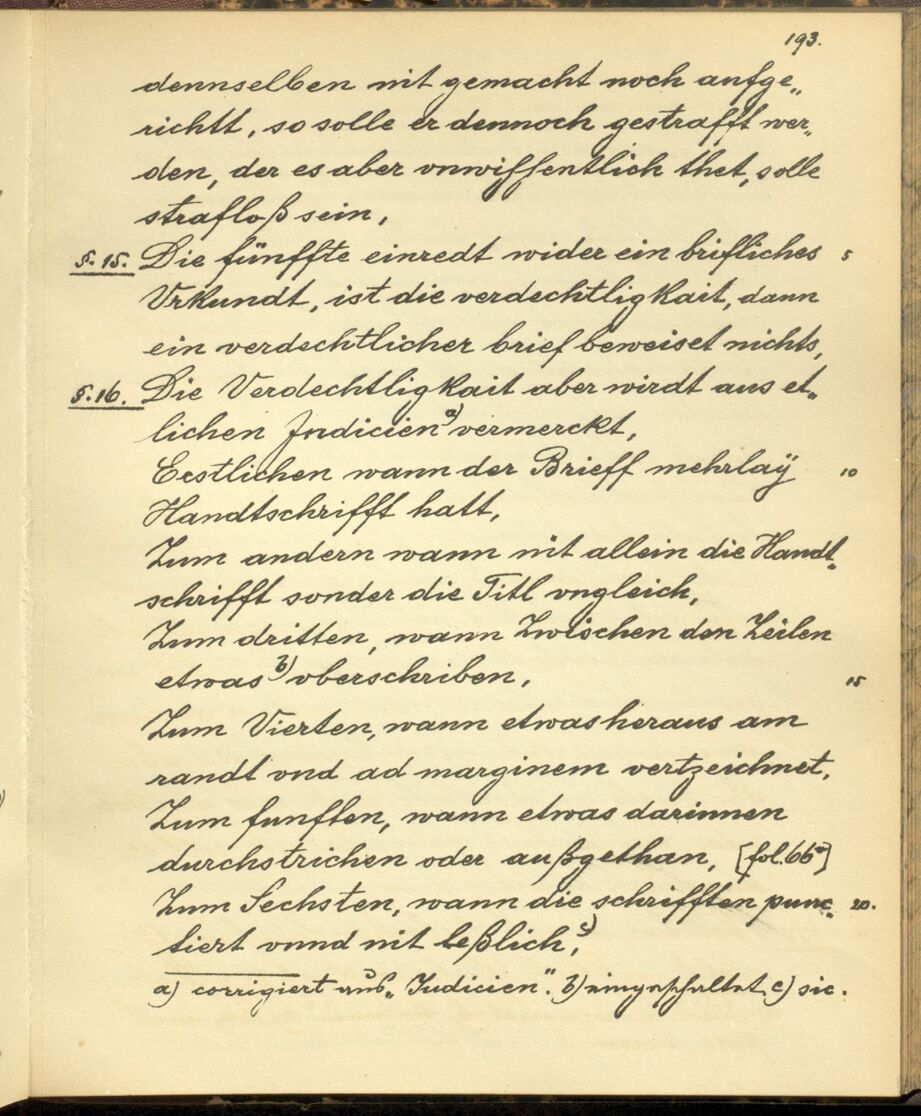 193.
dennselben nit gemacht noch aufge„
richtt, so solle er dennoch gestrafft wer„
den, der es aber vnwissentlich thet, solle
strafloß sein,
§. 15. Die fünffte einredt wider ein brifliches 5
Vrkundt, ist die verdechtligkait, dann
ein verdechtlicher brief beweiset nichts,
§. 16. Die Verdechtligkait aber wirdt aus et„
lichen Indicien a) vermerckt,
Erstlichen wann der Brieff mehrlaÿ 10
Handtschrifft hatt,
Zum andern wann nit allein die Handt„
schrifft sonder die Titl vngleich,
Zum dritten, wann Zwischen den Zeilen
etwas b) vberschriben, 15
Zum Vierten, wann etwas heraus am
randt vnd ad marginem vertzeichnet,
Zum funfften, wann etwas darinnen
durchstrichen oder außgethan, [fol. 66v]
Zum Sechsten, wann die schrifften punc„ 20.
tiert vnnd nit leßlich, c)
a) corrigiert aus „Iudicien“. b) eingeschaltet c) sic.